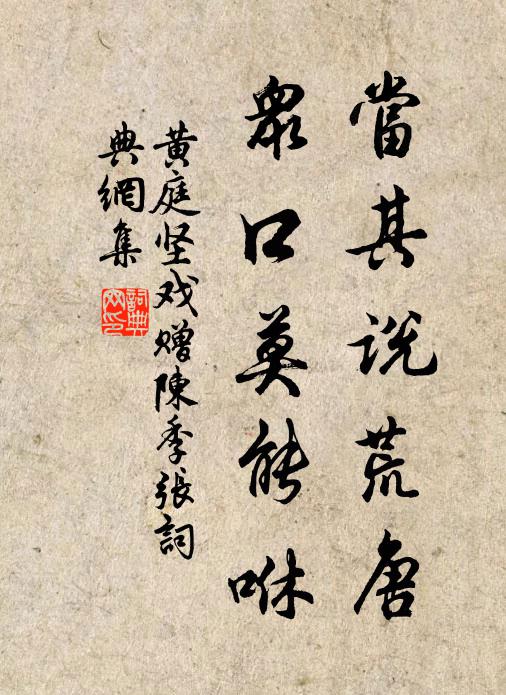 當其說荒唐
衆口莫能咻
黄庭坚戏贈陳季張詞
典網集
詞典
网印